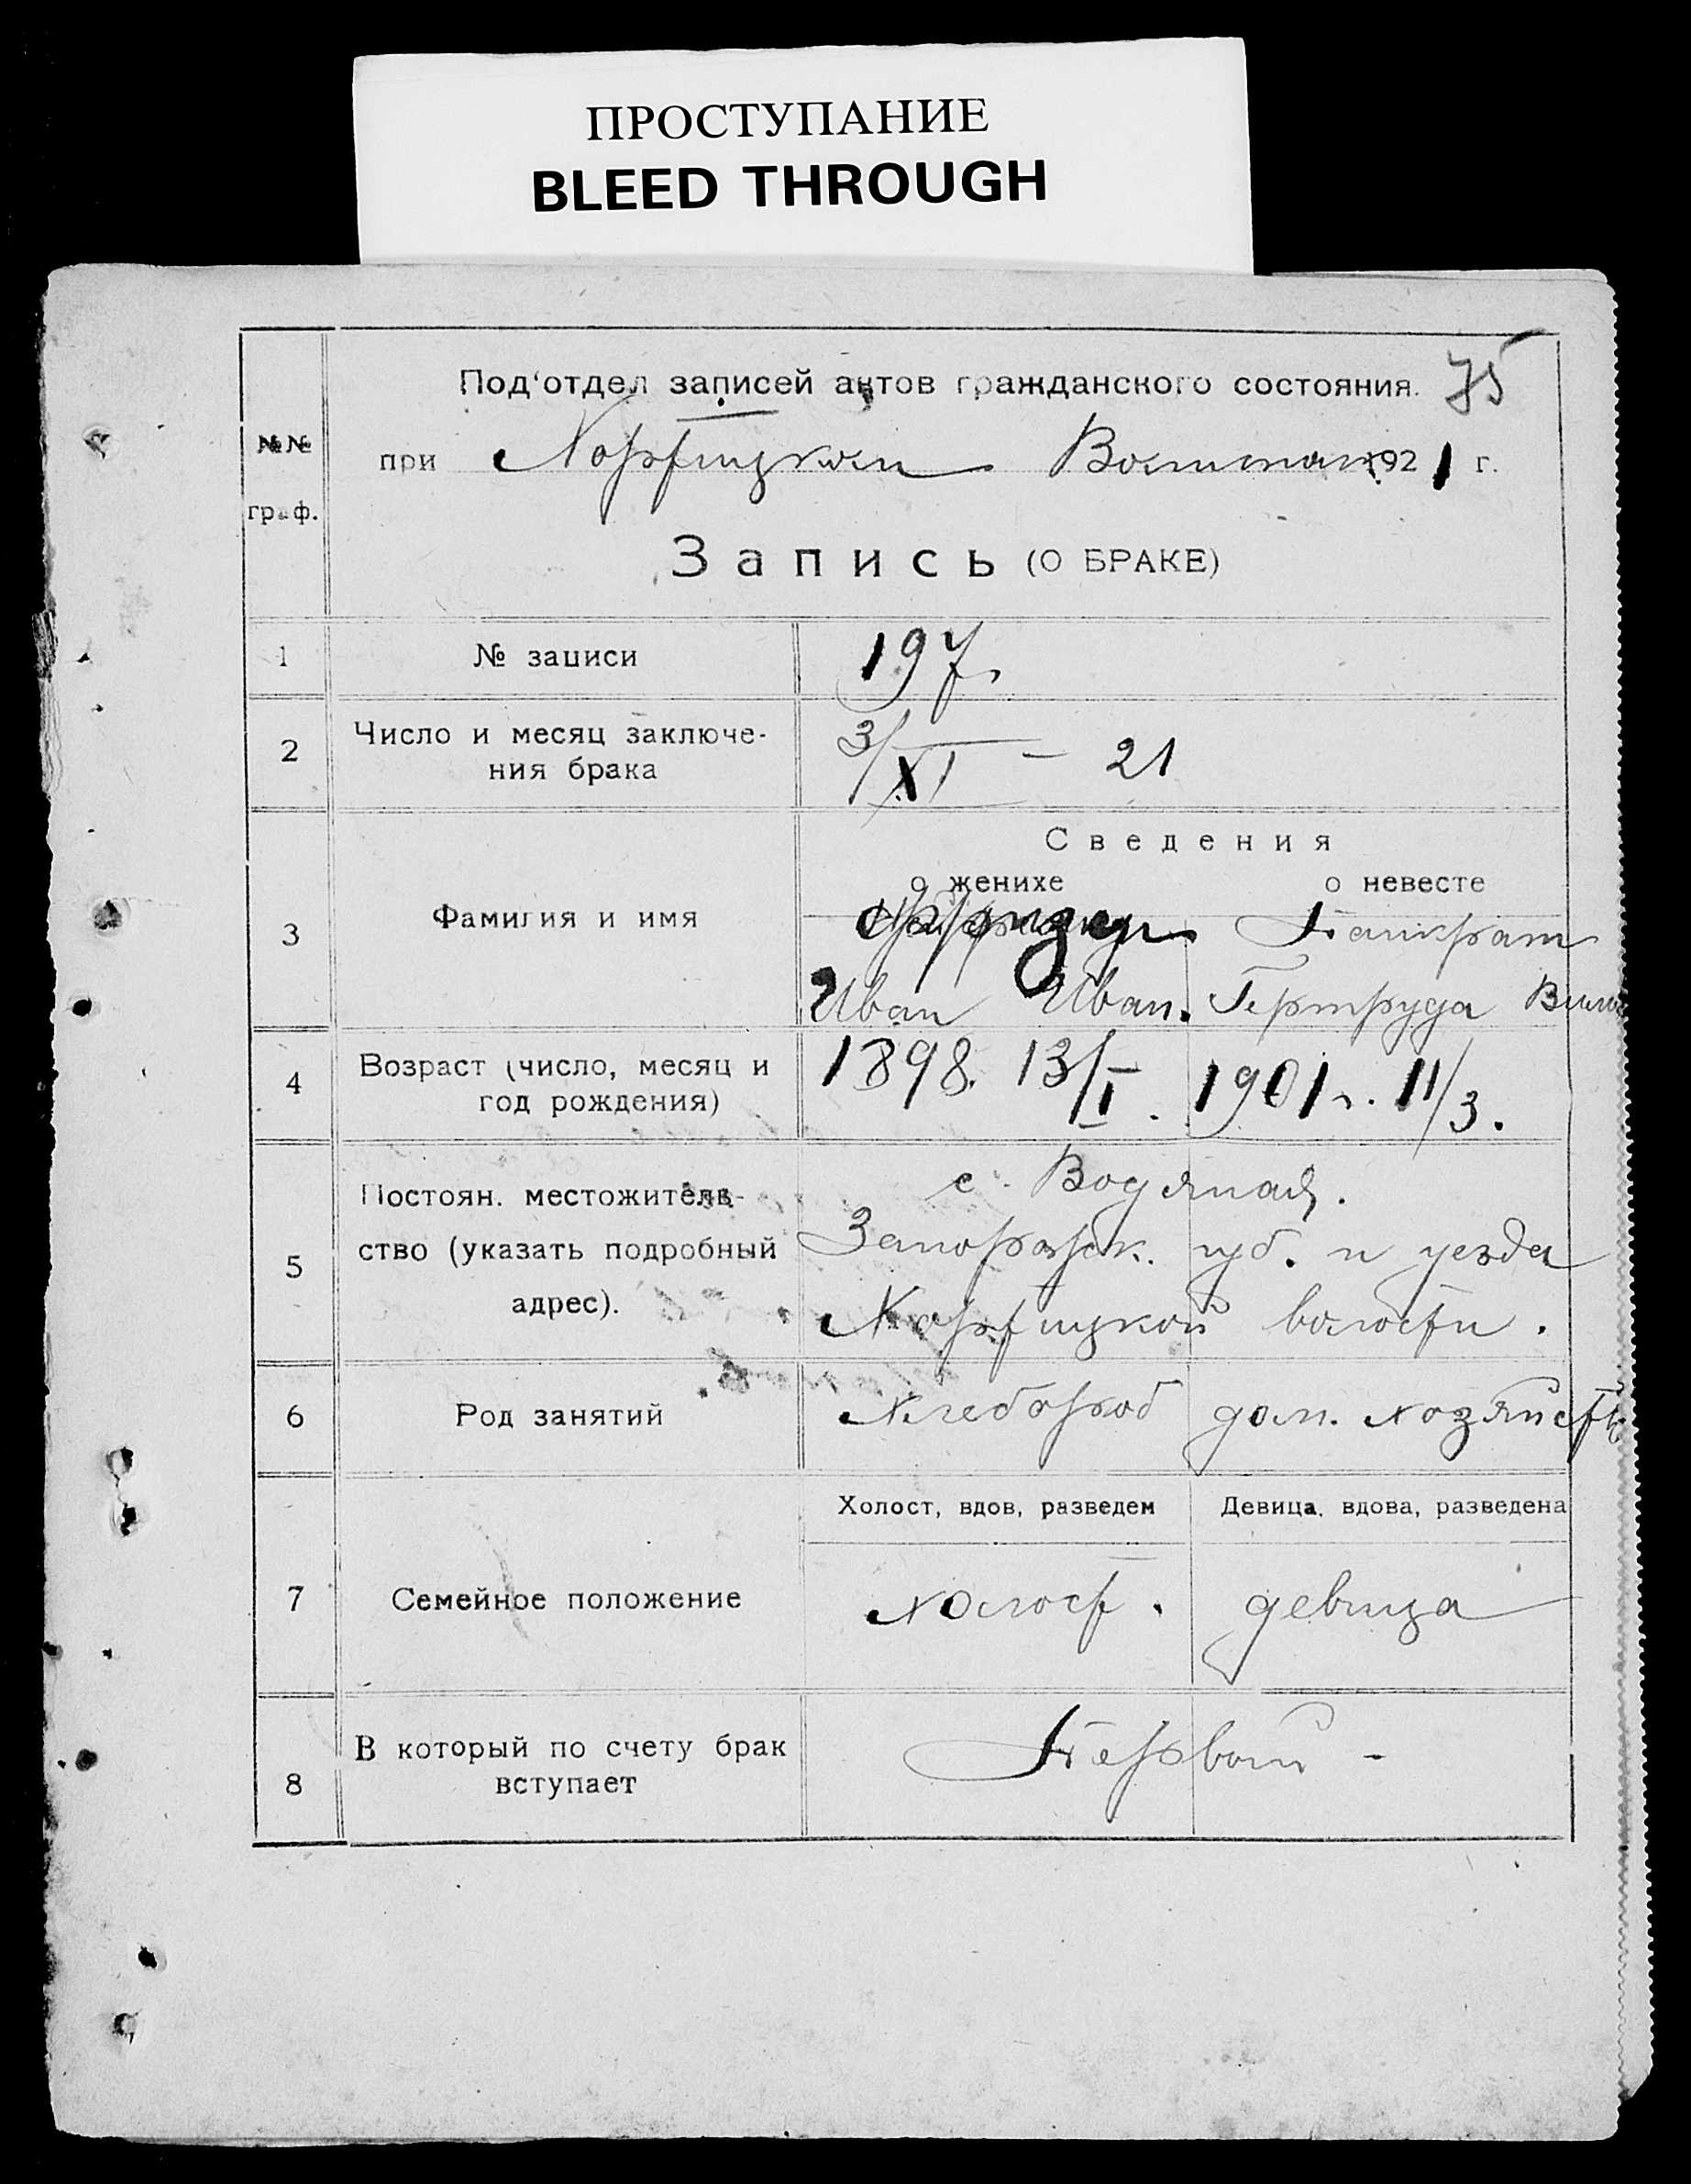 ПРОСТУПАНИЕ
BLEED THROUGH
Под'отдел записей актов гражданского состояния. 75
№№
граф.
при Хортицком 1921 г.
Запись (О БРАКЕ)
1 № записи 197.
2 Число и месяц заключе-
ния брака
3/XI – 21
Сведения
о женихе о невесте
3 Фамилия и имя
Панкрат
Иван Иван. Гертруда
4 Возраст (число, месяц и
год рождения)
1898. 13/I. 1901 г. 11/3.
5 Постоян. местожитель-
ство (указать подробный
адрес).
с. Водяная.
Запорожск. губ. и уезда
Хортицкой волости.
6 Род занятий Хлебороб дом. хозяйств
Холост, вдов, разведен Девица, вдова, разведена
7 Семейное положение холост. девица
8 В который по счету брак
вступает
Первый -